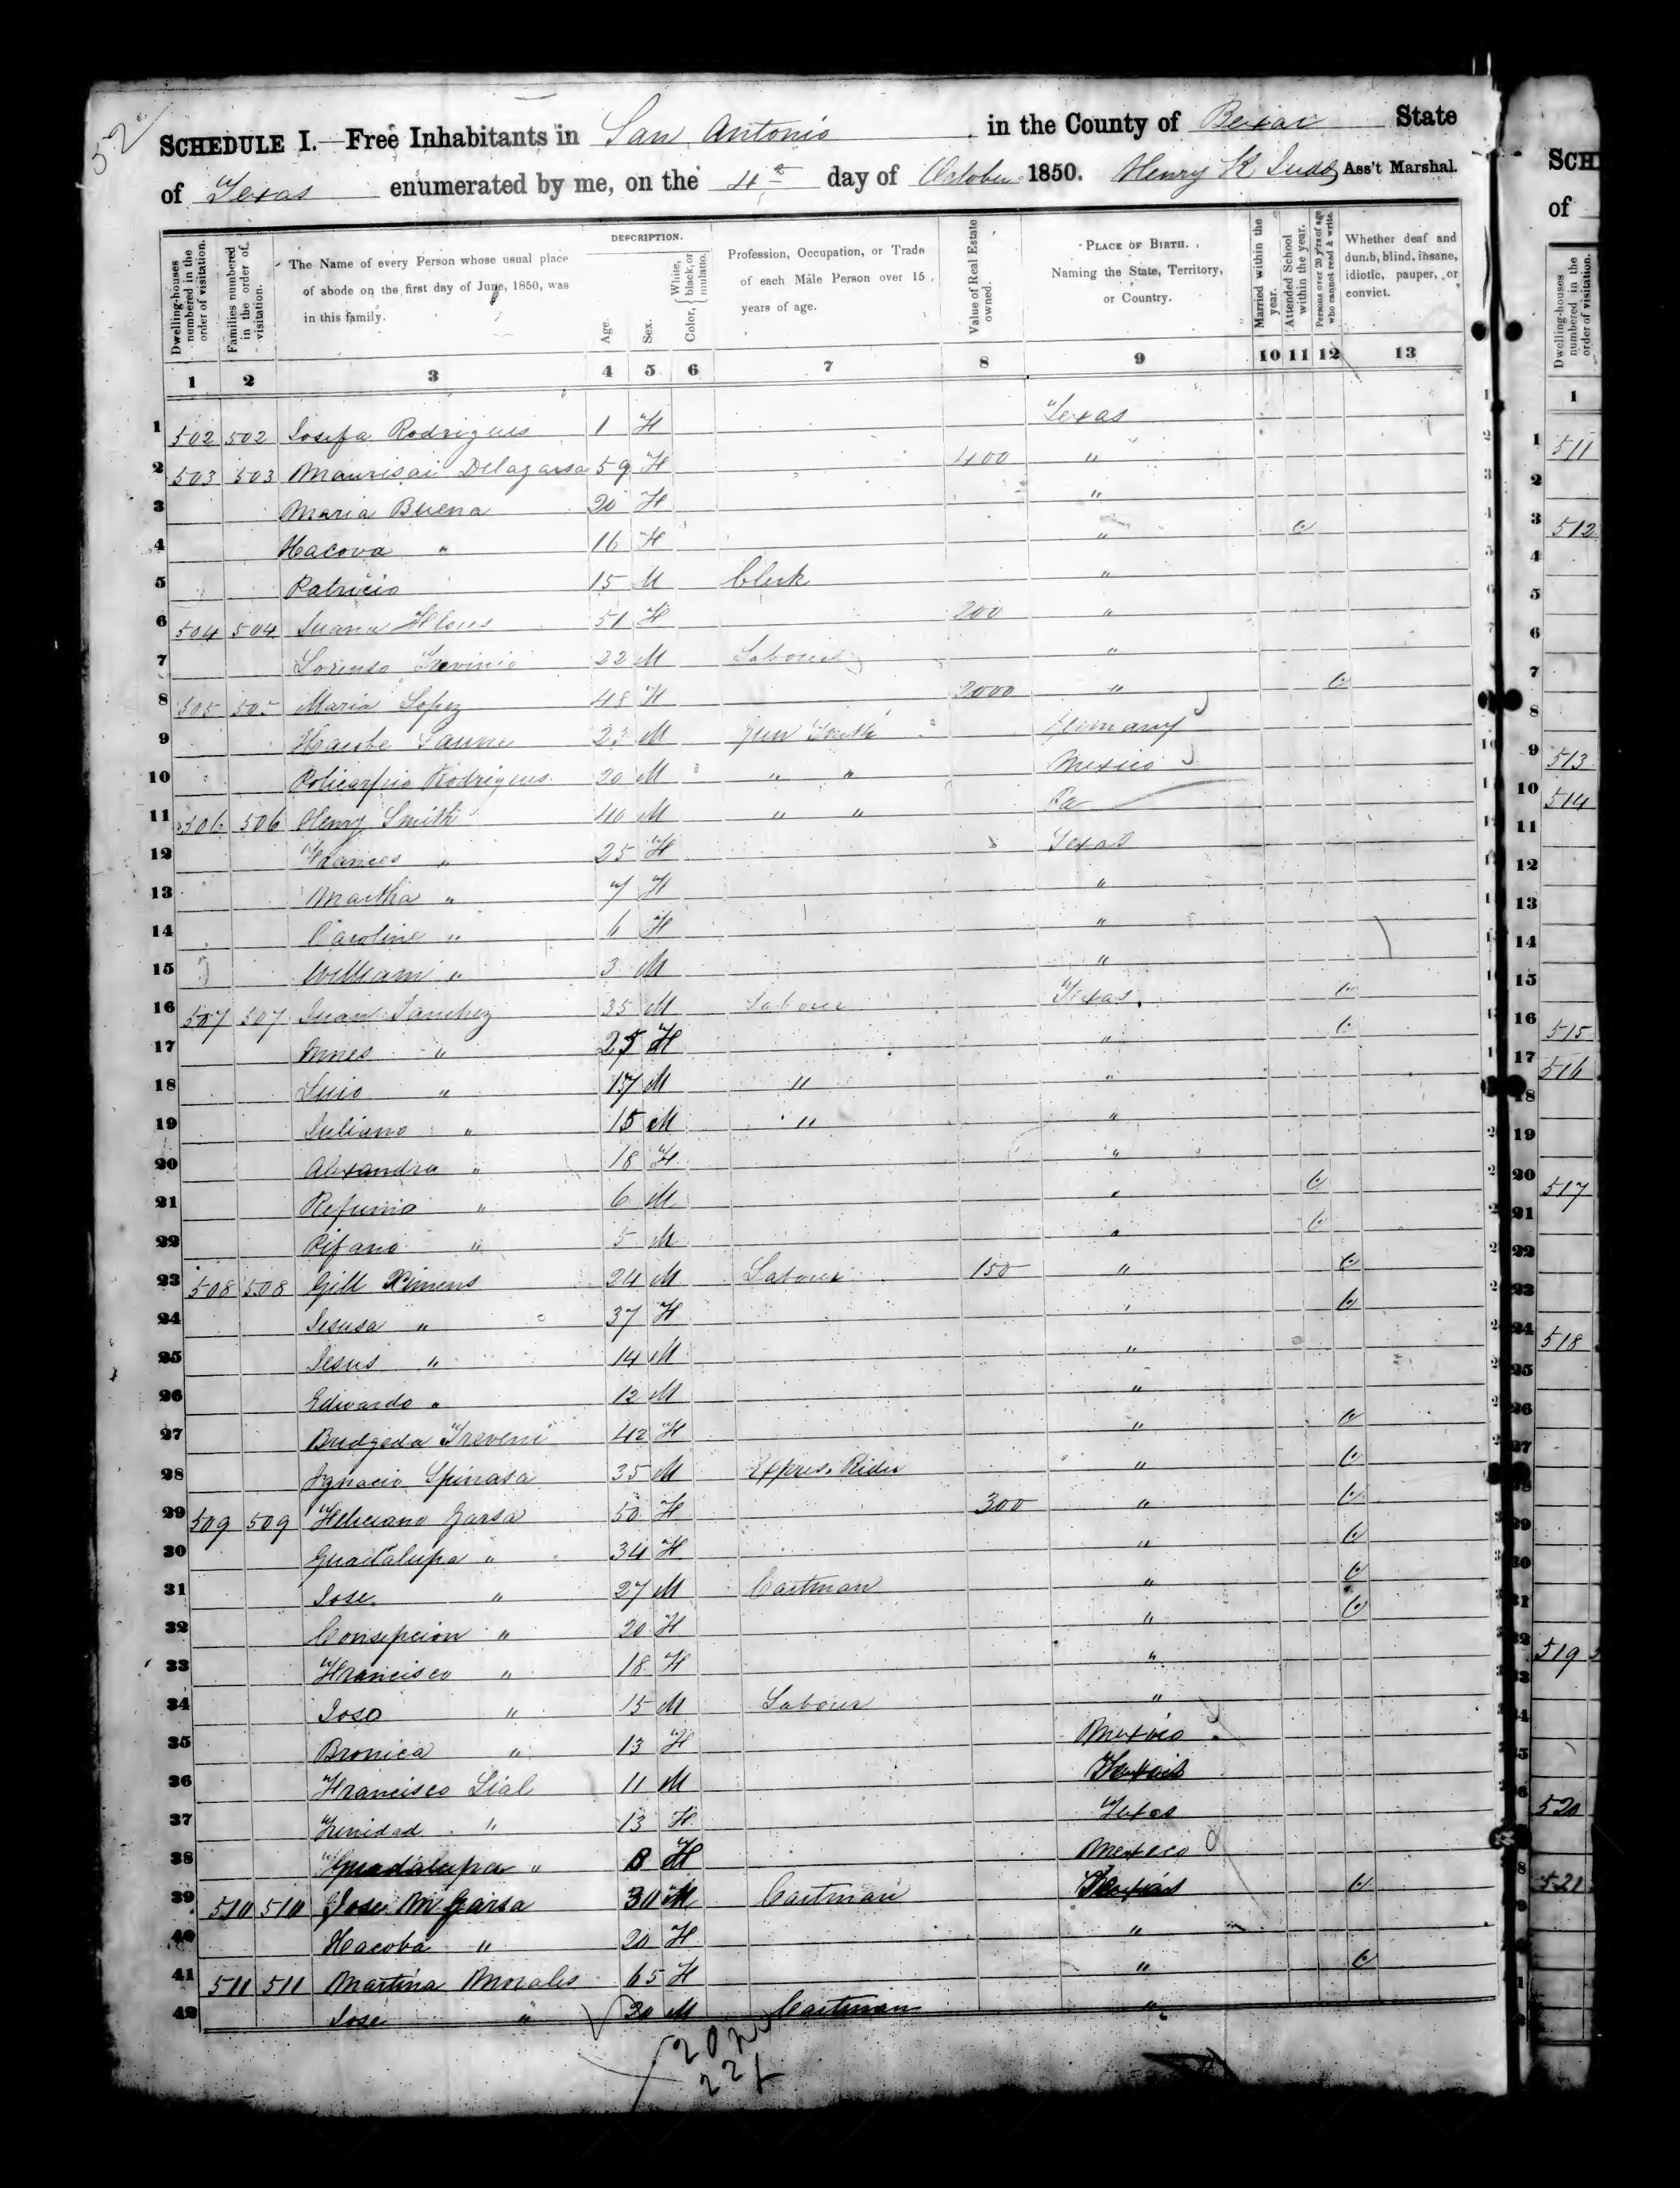 52
SCHEDULE I.—Free Inhabitants in San Antonio in the County of Bexar State
of Texas enumerated by me, on the 4th day of October 1850. Henry K Ass't Marshal.
Dwelling-houses numbered in the order of visitation.
Families numbered in the order of visitation.
The Name of every Person whose usual place of abode on the first day of June, 1850, was in this family.
DESCRIPTION.
Age.
Sex.
Color, { White, black, or mulatto.
Profession, Occupation, or Trade of each Male Person over 15 years of age.
Value of Real Estate owned.
PLACE OF BIRTH. Naming the State, Territory, or Country.
Married within the year.
Attended School within the year.
Persons over 20 y'rs of age who cannot read & write.
Whether deaf and dumb, blind, insane, idiotic, pauper, or convict.
1 2 3 4 5 6 7 8 9 10 11 12 13
1 502 502 Josefa Rodrigues 1 F Texas
2 503 503 Delagarsa 59 F 400 "
3 Maria Buena 20 F "
4 Hacova " 16 F "
5 Patricio 15 M Clerk "
6 504 504 Juana Flores 51 F 200 "
7 Lorenso Trevinio 22 M Labourer "
8 505 505 Maria Lopez 48 F 2000 "
9 23 M Gun Smith Germany
10 Policarpio Rodrigues 20 M " " Mexico
11 506 506 Henry Smith 40 M " " Pa
12 Frances " 25 F Texas
13 Martha " 7 F "
14 Caroline " 6 F "
15 William " 3 M "
16 507 507 Juan Sanchez 35 M Labourer Texas
17 " 25 F "
18 " 17 M " "
19 Juliano " 15 M " "
20 Alexandra " 18 F "
21 " 6 M "
22 " 5 M "
23 508 508 Gill Ximens 24 M Labourer 150 "
24 Jesusa " 37 F "
25 Jesus " 14 M "
26 Edwardo " 12 M "
27 42 F "
28 Ignacio Spinasa 35 M Express Rider "
29 509 509 Feliciano Garsa 50 F 300 "
30 Guadalupa " 34 F "
31 Jose " 27 M Cartman "
32 Consepcion " 20 F "
33 Francisco " 18 F "
34 Joso " 15 M Labourer "
35 Bronica " 13 F Mexico
36 Francisco Lial 11 M
37 Trinidad " 13 F Texas
38 Guadalupa " 8 F Mexico
39 510 510 Jose M Garsa 30 M Cartman Texas
40 Hacoba " 20 F "
41 511 511 Martina Morales 65 F "
42 Jose " 30 M Cartman "
20 M
22 f
SCH
of
Dwelling-houses numbered in the order of visitation.
1
1 511
2
3 512
4
5
6
7
8
9 513
10 514
11
12
13
14
15
16 515
17 516
18
19
20 517
21
22
23
24 518
25
26
27
519
520
521